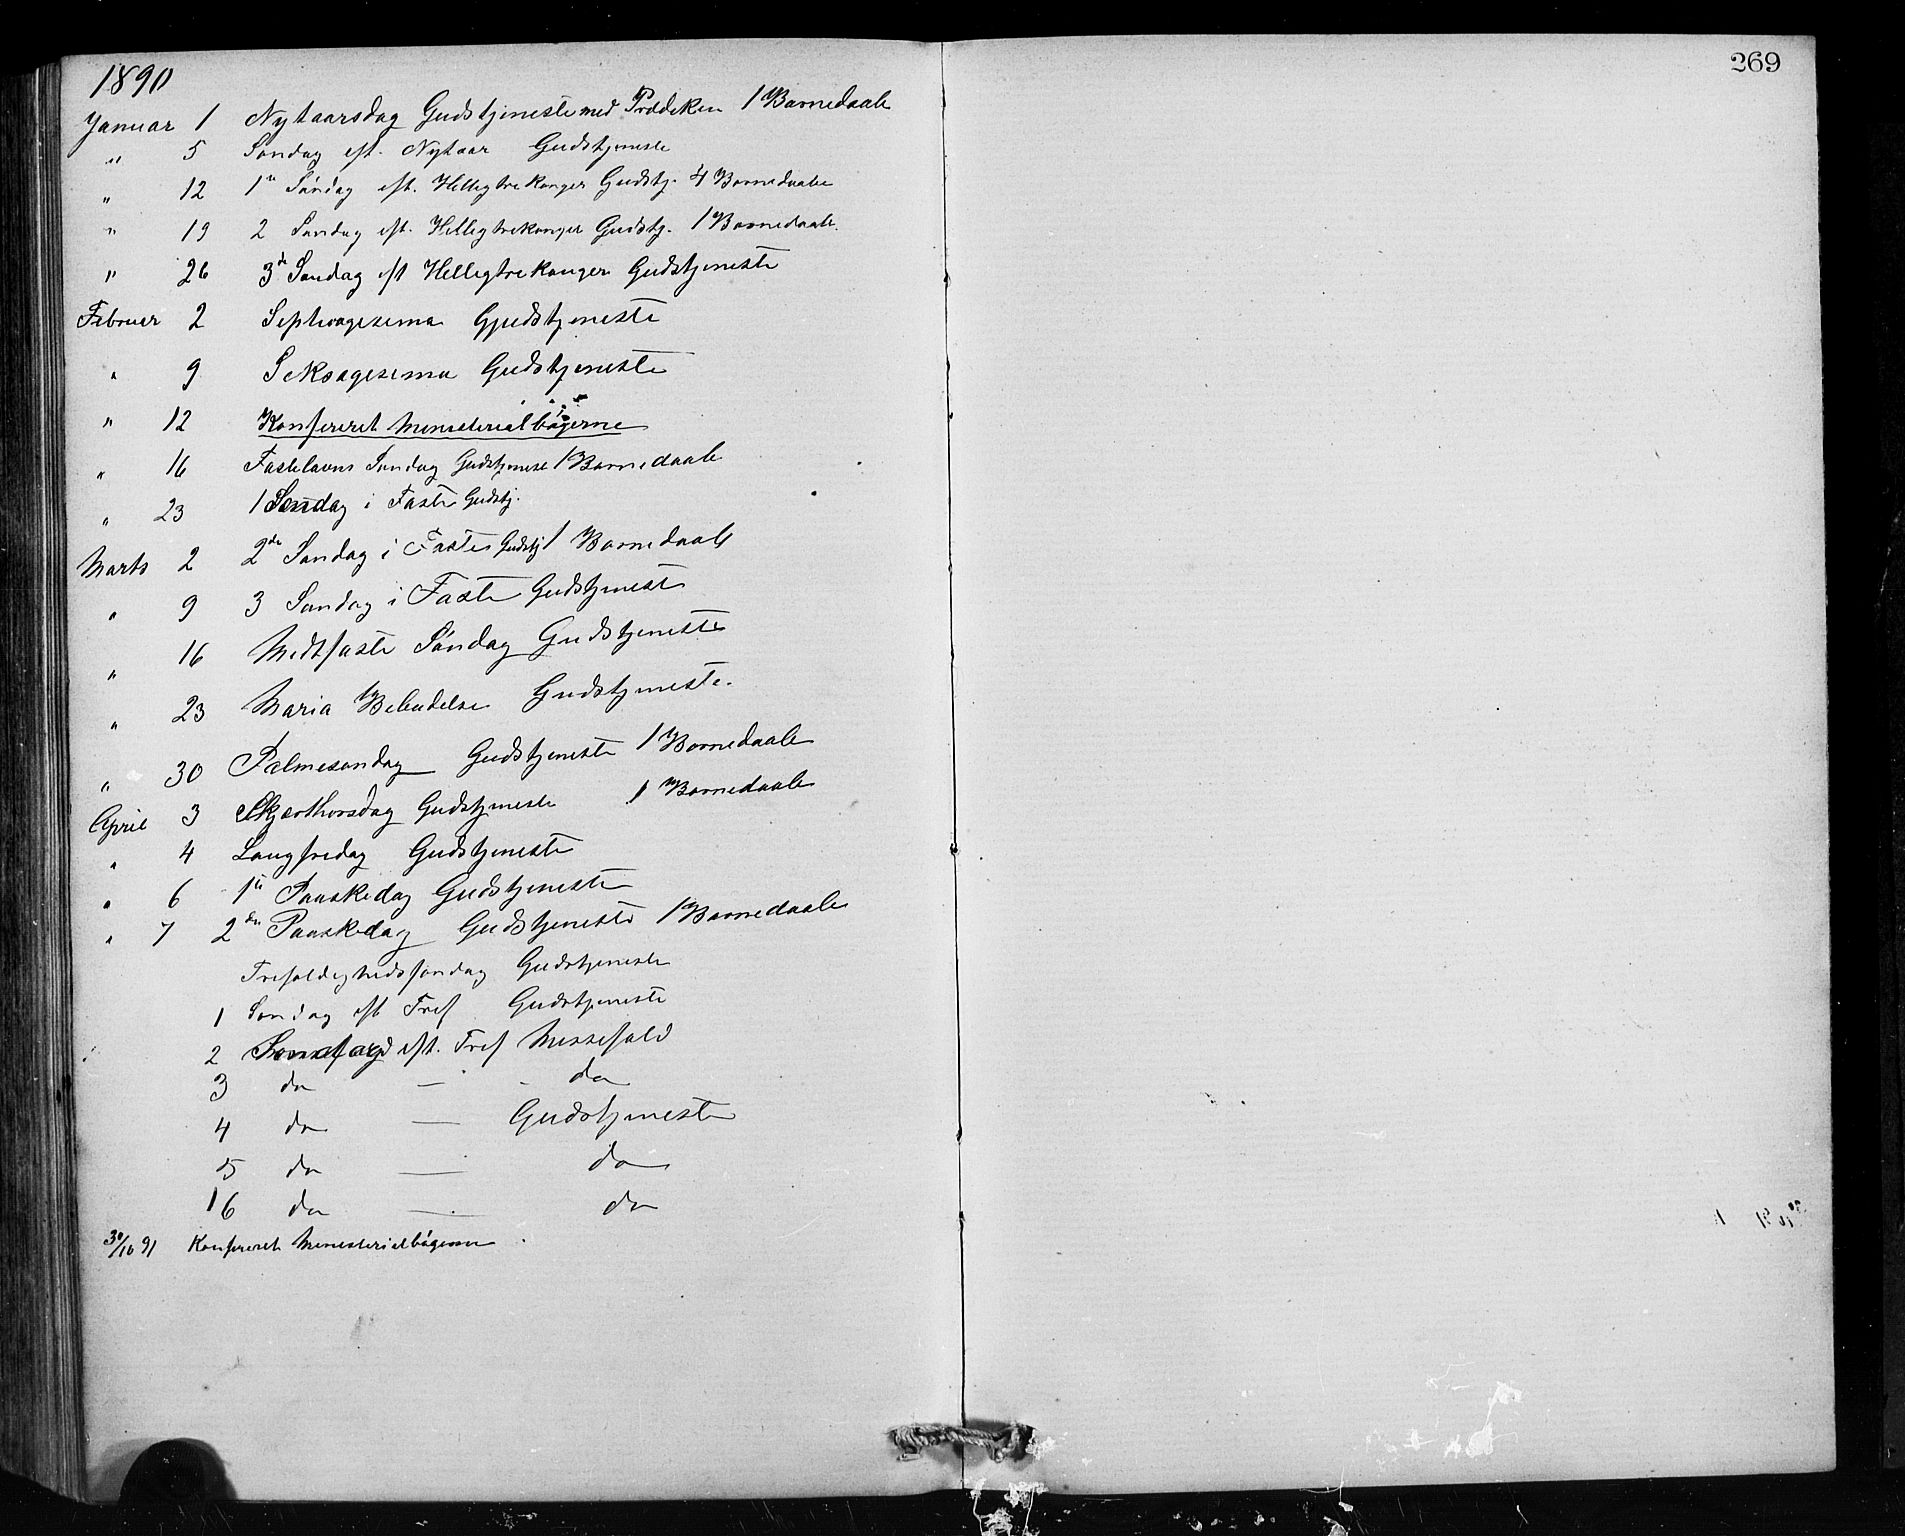 1890
Januar 1 Nytaarsdag Gudstjeneste med Prædeken 1 Barnedaab
" 5 Søndag eft. Nytaar Gudstjeneste
" 12 1ste Søndag eft. Helligtrekonger Gudstj. 4 Barnedaabe
" 19 2 Søndag eft. Helligtrekonger Gudstj. 1 Barnedaab.
" 26 3de Søndag eft Helligtrekonger Gudstjeneste
Februer 2 Septuagesema Gjudstjeneste
" 9 Seksagesema Gudstjeneste
" 12 Konfereret Menesterialbøgerne
" 16 Fastelavns Søndag Gudstjenest 1 Barnedaab
" 23 1 Søndag i Faste Gudstj.
Marts 2 2den Søndag i Faste Gudstj 1 Barnedaab
" 9 3 Søndag i Faste Gudstjenest
" 16 Midtfaste Søndag Gudstjeneste
" 23 Maria Bebudelse Gudstjeneste.
" 30 Palmesøndag Gudstjeneste 1 Barnedaab
April 3 Skjærthorsdag Gudstjeneste 1 Barnedaab
" 4 Langfredag Gudstjeneste
" 6 1ste Paaskedag Gudstjeneste
" 7 2den Paaskedag Gudstjeneste 1 Barnedaab
Trefoldighedssøndag Gudstjeneste
1 Søndag eft Tref Gudstjeneste
2 eft. Tref Messefald
3 do — - do
4 do — Gudstjeneste
5 do — do
16 do — do
30/10 91 Konfereret Menesterialbøgerne
269